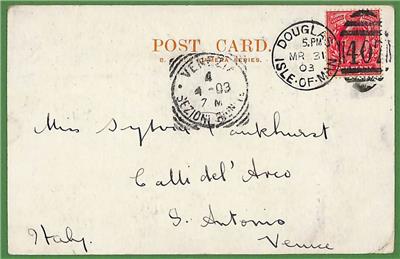 POST CARD.
C. & CAMERA SERIES.
DOUGLAS
5.PM
MR 31
03
ISLE-OF-MAN
407
VENEZIA
4
4-03
7 M
SEZIONI RIUNITE
Miss Sylvia Pankhurst
Calli del' Arco
S. Antonio
Venice
Italy.